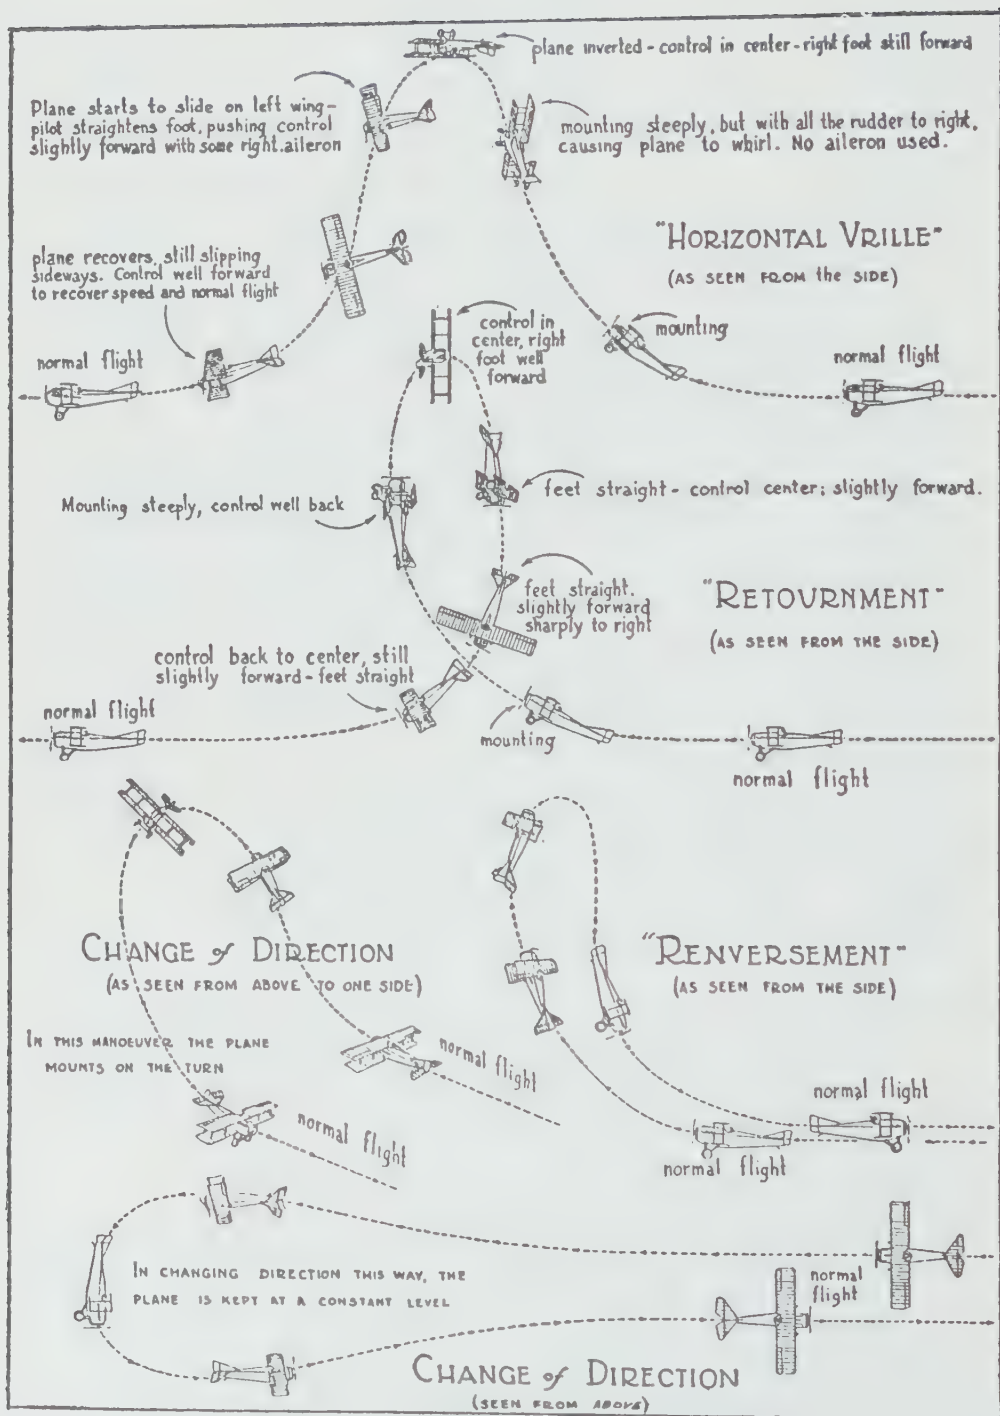 plane inverted - control in center - right foot still forward
Plane starts to slide on left wing -
pilot straightens foot, pushing control
slightly forward with some right aileron
mounting steeply, but with all the rudder to right,
causing plane to whirl. No aileron used.
"HORIZONTAL VRILLE"
(AS SEEN FROM the SIDE)
plane recovers, still slipping
sideways. Control well forward
to recover speed and normal flight
control in
center, right
foot well
forward
mounting
normal flight
normal flight
Mounting steeply, control well back
feet straight - control center; slightly forward.
feet straight.
slightly forward
sharply to right
"RETOURNMENT"
(AS SEEN FROM THE SIDE)
control back to center, still
slightly forward - feet straight
normal flight
mounting
normal flight
CHANGE of DIRECTION
(AS SEEN FROM ABOVE TO ONE SIDE)
"RENVERSEMENT"
(AS SEEN FROM THE SIDE)
IN THIS MANOEUVER THE PLANE
MOUNTS ON THE TURN
normal flight
normal flight
normal flight
normal flight
IN CHANGING DIRECTION THIS WAY, THE
PLANE IS KEPT AT A CONSTANT LEVEL
normal
flight
CHANGE of DIRECTION
(SEEN FROM ABOVE)